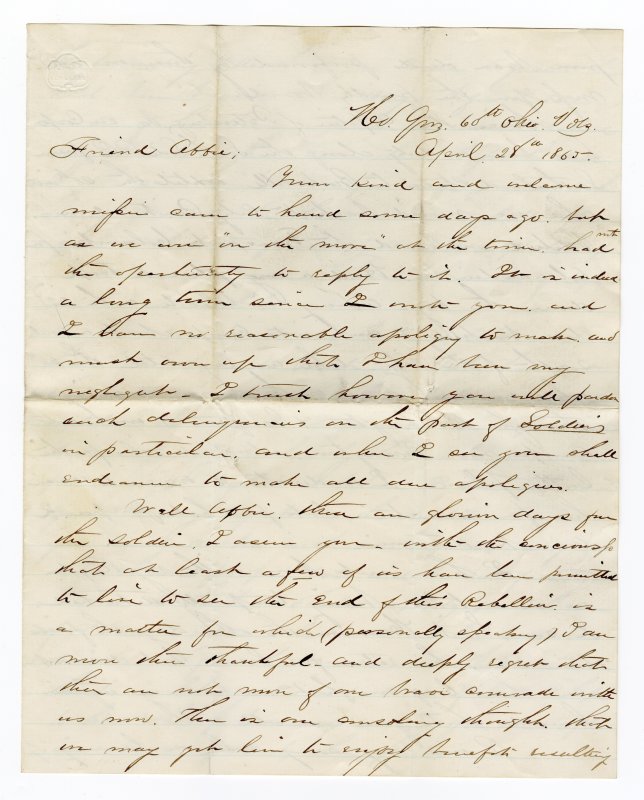 Hd. Qrs. 60th Ohio Vols.
April, 28th 1865.
Friend Abbie,
Your kind and welcome
missive came to hand some days ago. but
as we were "on the move" at the time. had
the opertunity to reply to it. It is indeed
a long time since I wrote you. and
I have no reasonable apoligy to make. and
must own up that I have been very
negligent - I trust however you will pardon
such delinquencies on the part of Soldiers
in particular. and when I see you shall
endeavor to make all due apoligies.
Well Abbie. these are glorious days for
the soldier. I assure you. with the
that at least a few of us have been permitted
to live to see the End of this Rebellion. is
a matter for which (personally speaking) I am
more than thankful - and deeply regret that
there are not more of our brave comrade with
us now. There is one consoling thought. that
we may yet live to enjoy benefits resulting